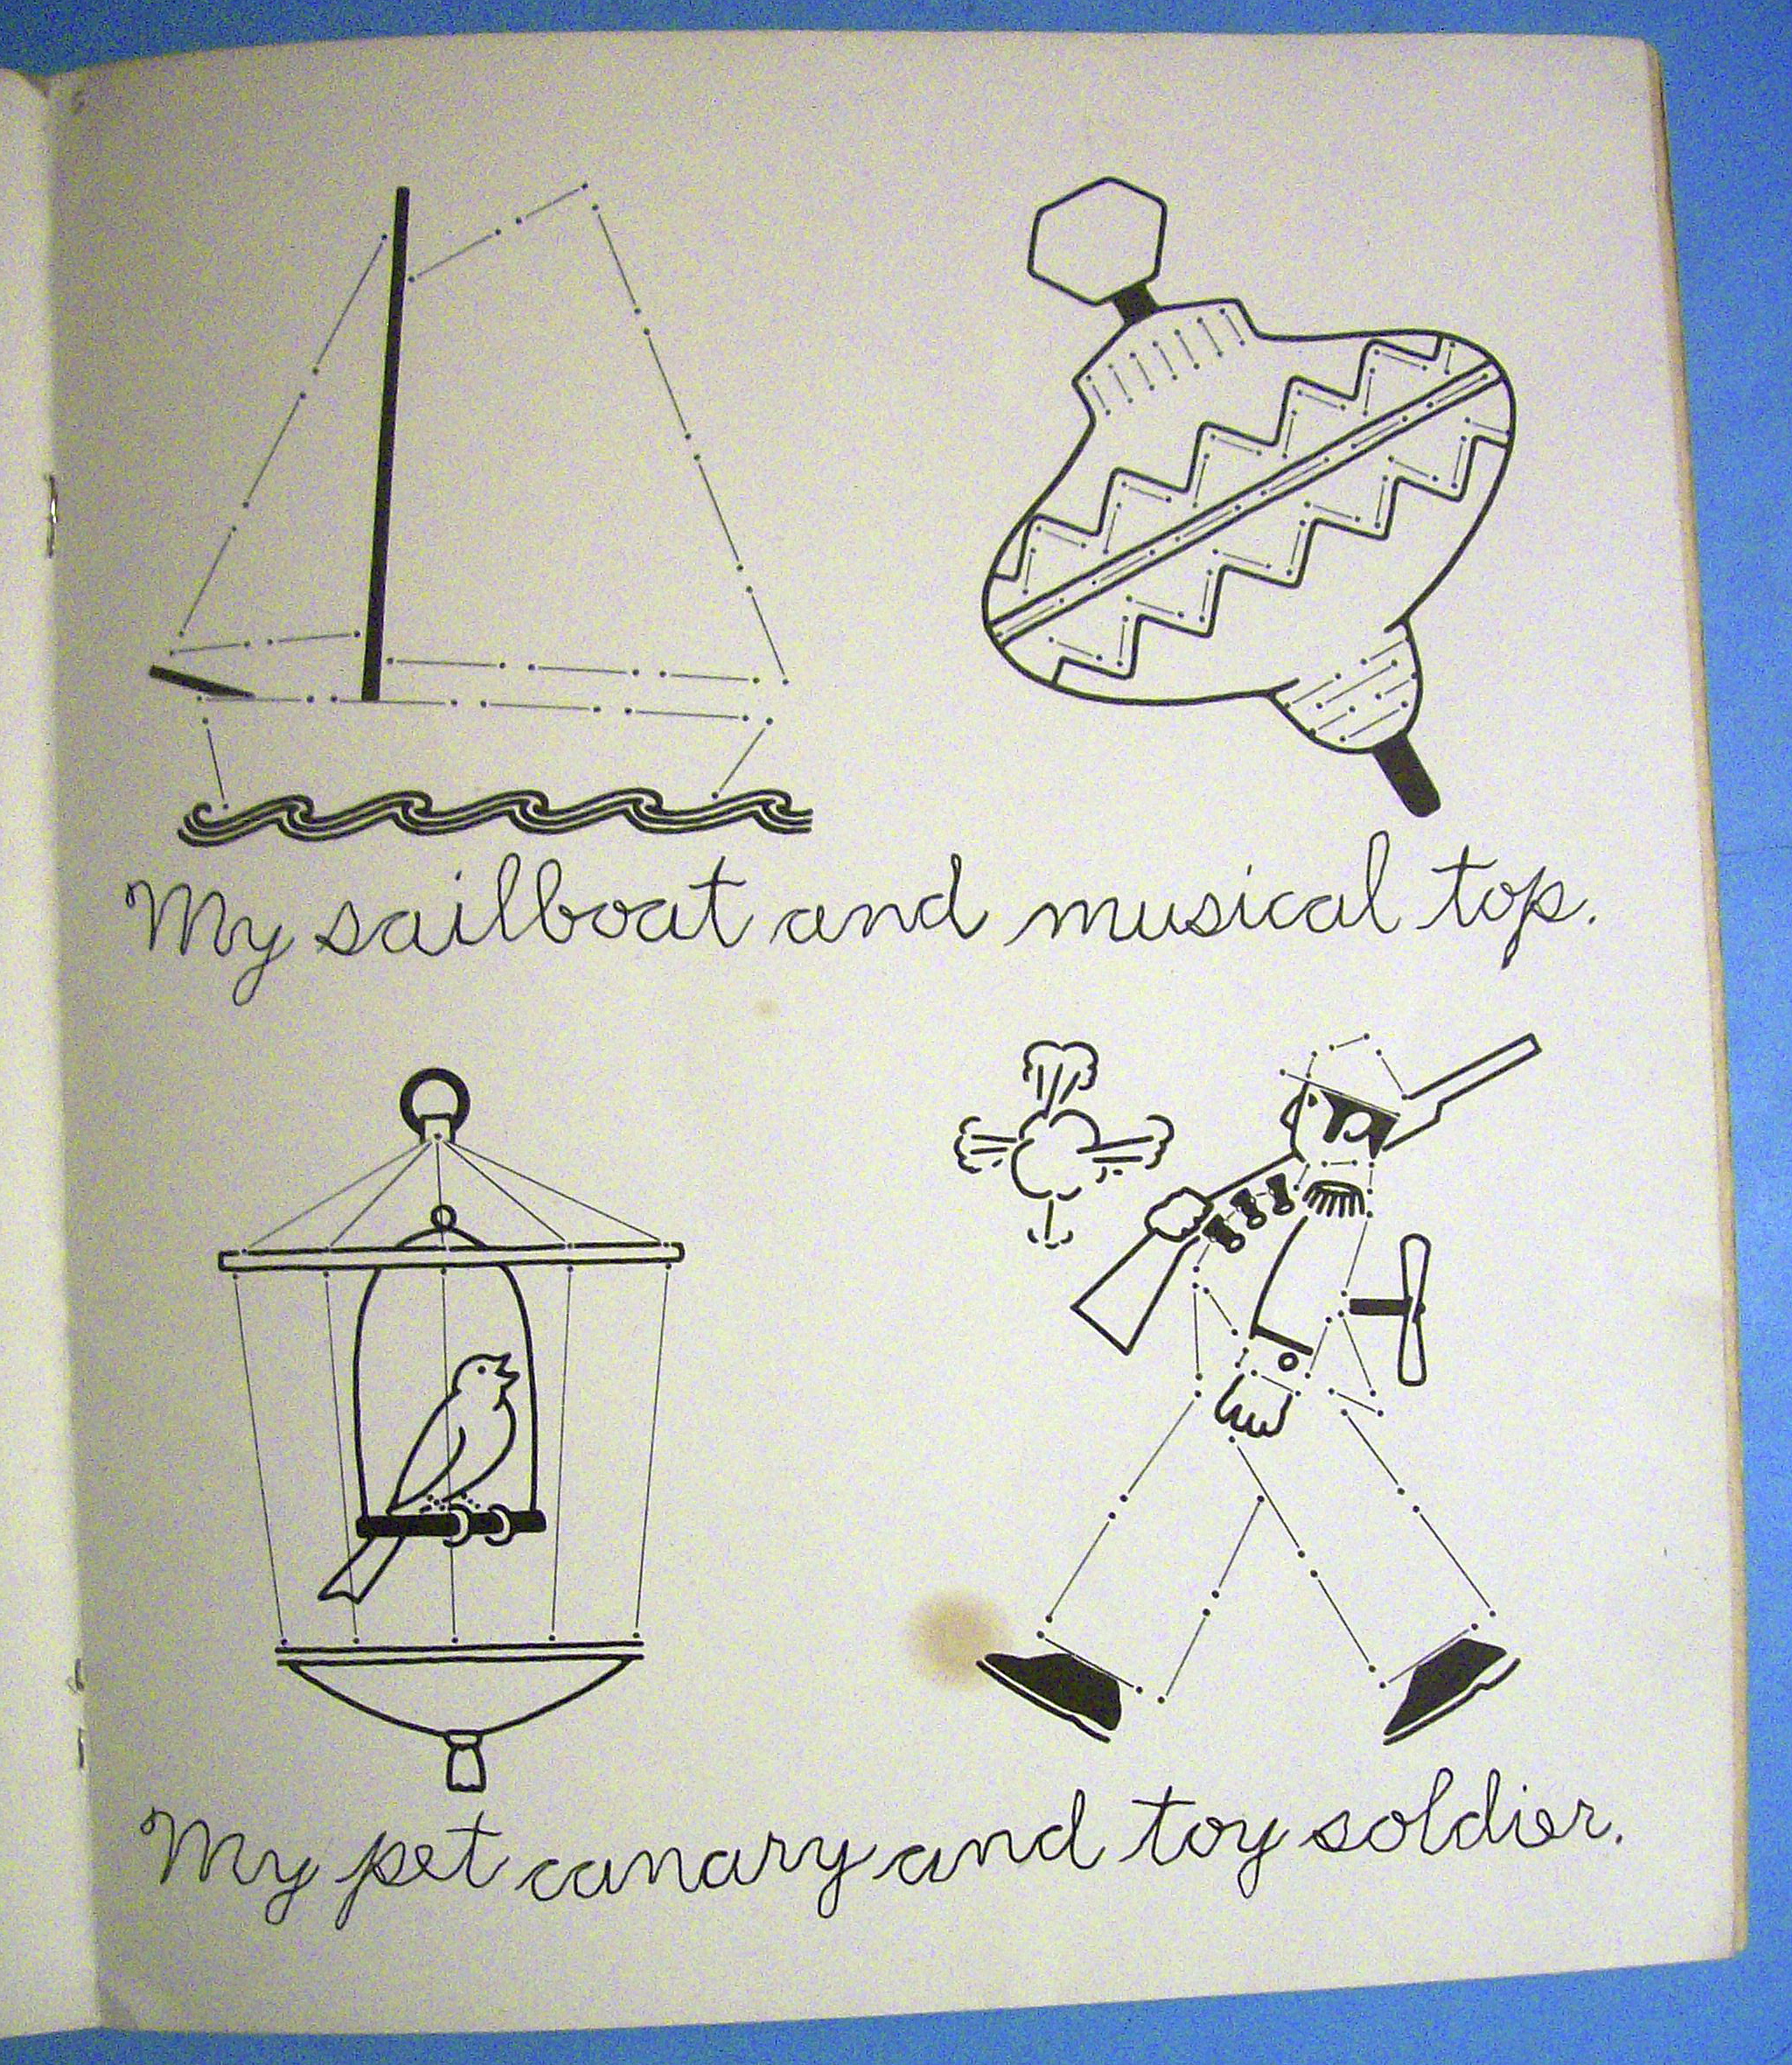 My sailboat and musical top.
My pet canary and toy soldier.